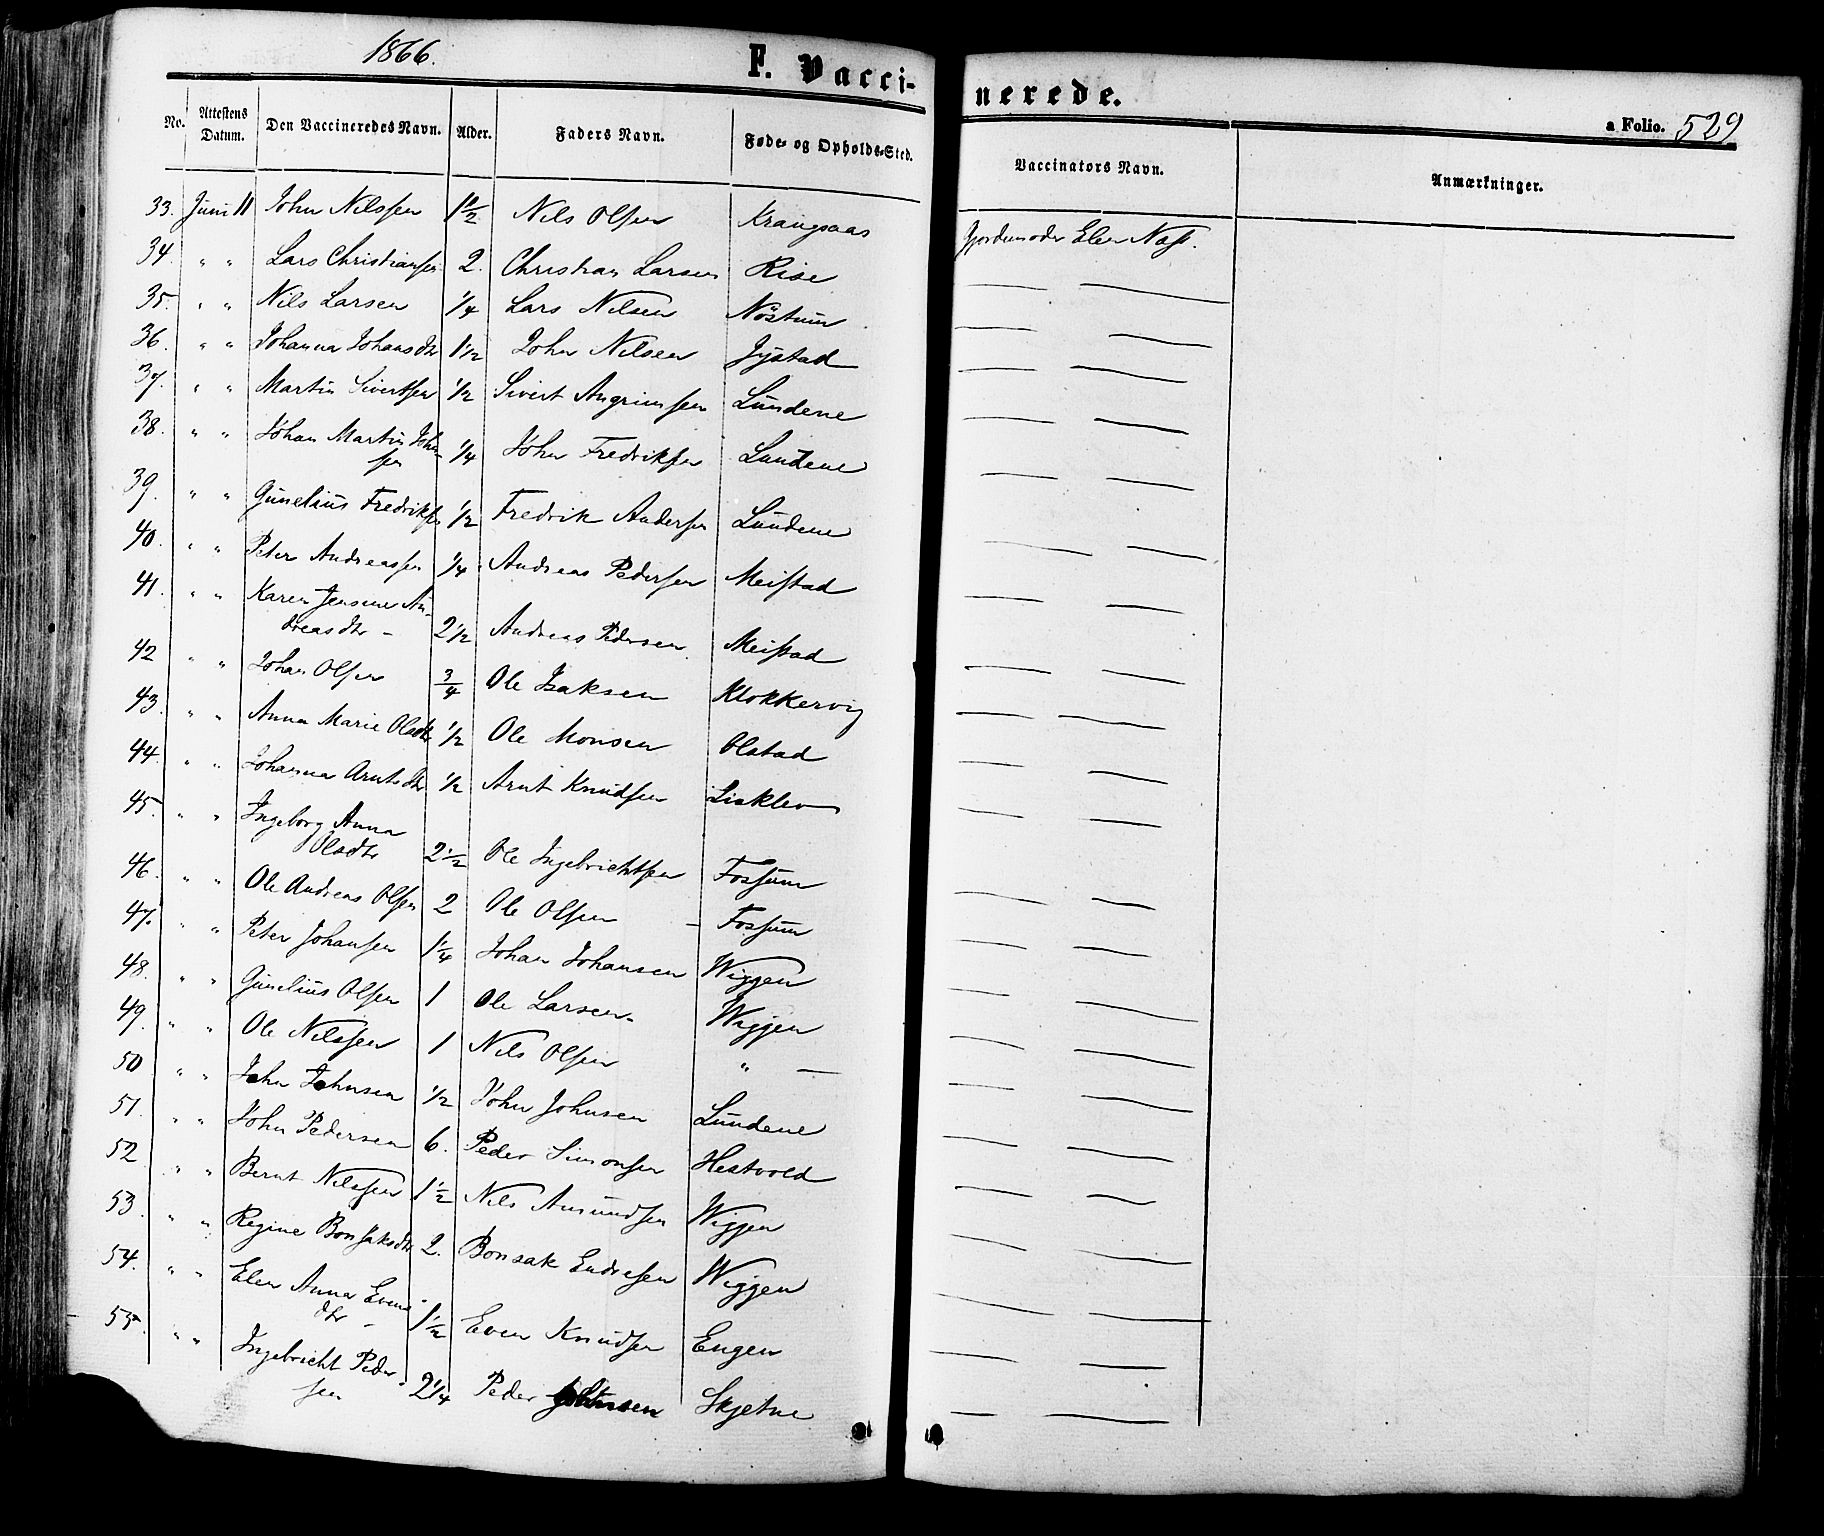 1866.
F. Vacci-
nerede.
a Folio. 529
No. Attestens Datum. Den Vaccineredes Navn. Alder. Faders Navn. Føde- og Opholds-Sted. Vaccinators Navn. Anmærkninger.
33. Juni 11 John Nilssen 1 1/2 Nils Olsen Krangsaas Gjordemoder Elen Næss.
34. " " Lars Christiansen 2. Christian Larsen Rise — —
35. " " Nils Larsen 1/4 Lars Nilsen Nöstum — —
36. " " Johanna Johnsdtr 1 1/2 John Nilsen Jystad — —
37. " " Martin Sivertsen 1/2 Sivert Angrimsen Lundene — —
38. " " Johan Martin John-
sen 1/4 John Fredriksen Lundene — —
39. " " Gunelius Fredriksen 1/2 Fredrik Andersen Lundene — —
40. " " Peter Andreassen 1/4 Andreas Pedersen Meistad — —
41. " " Karen Jensine An-
dreasdtr - 2 1/2 Andreas Pedersen Meistad — —
42 " " Johan Olsen 3/4 Ole Isaksen Klokkervig — —
43. " " Anna Marie Olsdtr 1/2 Ole Monsen Olstad — —
44. " " Johanna Arntsdtr 1/2 Arnt Knudsen Liaklev — —
45. " " Ingeborg Anna
Olsdtr 2 1/2 Ole Ingebrichtsen Fossum — —
46. " " Ole Andreas Olsen 2 Ole Olsen - Fossum — —
47. " " Peter Johansen 1 1/4 Johan Johansen Wiggen — —
48. " " Gunelius Olsen 1 Ole Larsen. Wiggen — —
49. " " Ole Nilssen 1 Nils Olsen " — — —
50 " " John Johnsen 1/2 John Johnsen Lundene — —
51. " " John Pedersen 6. Peder Simonsen Hestvold — —
52 " " Bernt Nilssen 1 1/2 Nils Amundsen Wiggen — —
53. " " Regine Bonsaksdtr 2. Bonsak Endresen Wiggen — —
54. " " Elen Anna Evens-
dtr - 1 1/2 Even Knudsen Engen — —
55. " " Ingebricht Peder-
sen 2 1/4 Peder Johnsen Skjetne — —